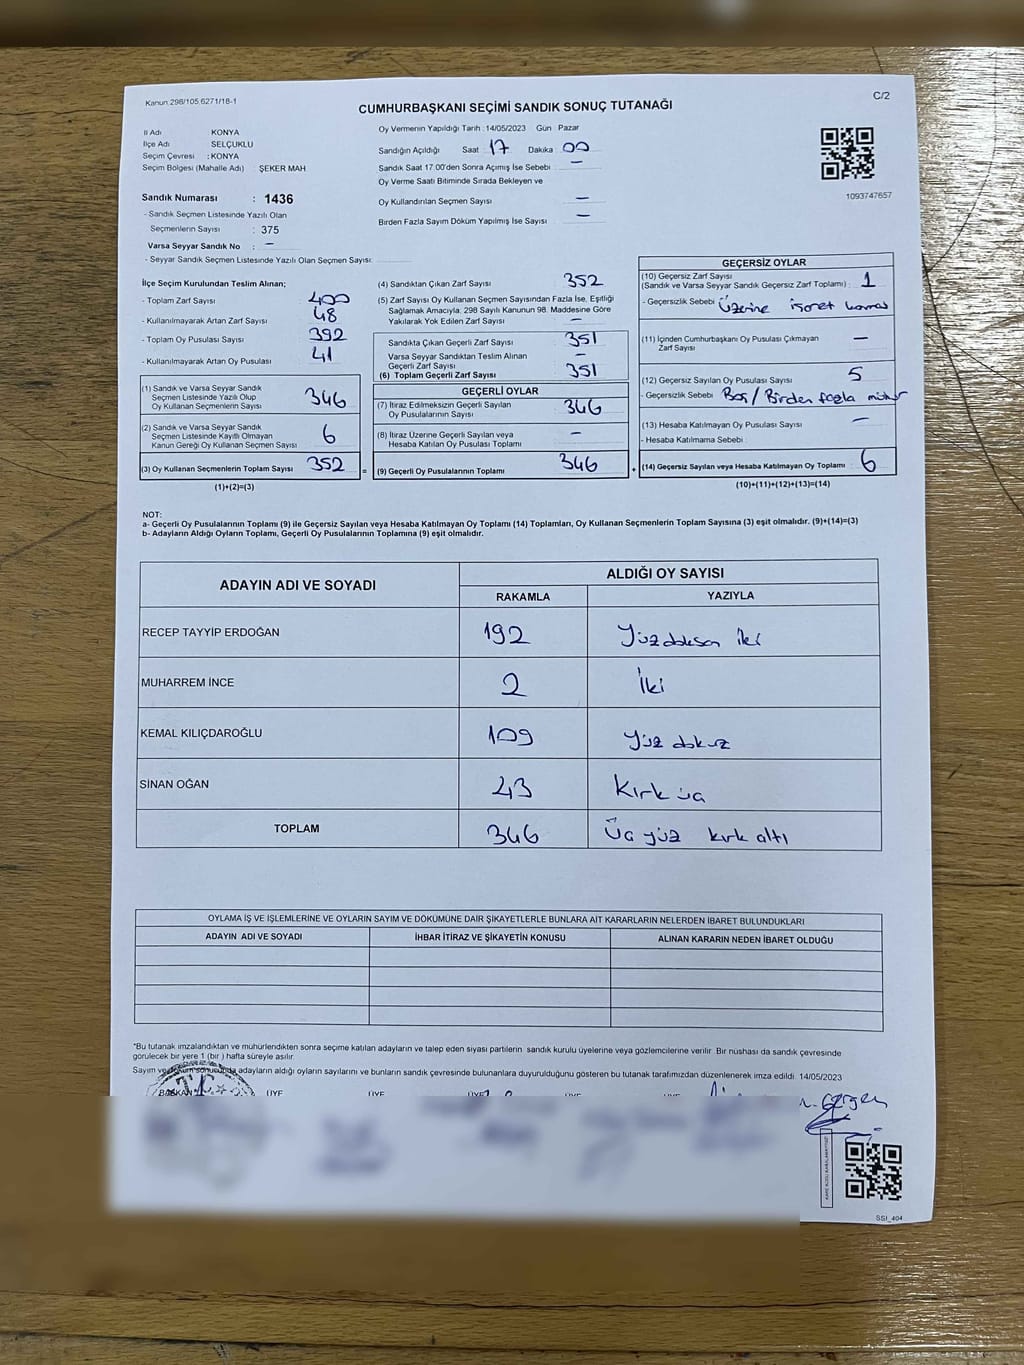 Kanun:298/105.6271/18-1
C/2
CUMHURBAŞKANI SEÇİMİ SANDIK SONUÇ TUTANAĞI
İl Adı KONYA
İlçe Adı SELÇUKLU
Seçim Çevresi : KONYA
Seçim Bölgesi (Mahalle Adı) ŞEKER MAH
Oy Vermenin Yapıldığı Tarih :14/05/2023 Gün Pazar
Sandığın Açıldığı Saat 17 Dakika 00
Sandık Saat 17:00'den Sonra Açımış İse Sebebi —
Oy Verme Saati Bitiminde Sırada Bekleyen ve
Oy Kullandırılan Seçmen Sayısı —
Birden Fazla Sayım Döküm Yapılmış İse Sayısı —
1093747657
Sandık Numarası : 1436
- Sandık Seçmen Listesinde Yazılı Olan
Seçmenlerin Sayısı : 375
Varsa Seyyar Sandık No : —
- Seyyar Sandık Seçmen Listesinde Yazılı Olan Seçmen Sayısı:
İlçe Seçim Kurulundan Teslim Alınan;
- Toplam Zarf Sayısı 400
- Kullanılmayarak Artan Zarf Sayısı 48
- Toplam Oy Pusulası Sayısı 392
- Kullanılmayarak Artan Oy Pusulası 41
(1) Sandık ve Varsa Seyyar Sandık
Seçmen Listesinde Yazılı Olup
Oy Kullanan Seçmenlerin Sayısı 346
(2) Sandık ve Varsa Seyyar Sandık
Seçmen Listesinde Kayıtlı Olmayan
Kanun Gereği Oy Kullanan Seçmen Sayısı 6
(3) Oy Kullanan Seçmenlerin Toplam Sayısı 352 =
(1)+(2)=(3)
(4) Sandıktan Çıkan Zarf Sayısı 352
(5) Zarf Sayısı Oy Kullanan Seçmen Sayısından Fazla İse, Eşitliği
Sağlamak Amacıyla; 298 Sayılı Kanunun 98. Maddesine Göre
Yakılarak Yok Edilen Zarf Sayısı —
Sandıkta Çıkan Geçerli Zarf Sayısı 351
Varsa Seyyar Sandıktan Teslim Alınan
Geçerli Zarf Sayısı —
(6) Toplam Geçerli Zarf Sayısı 351
GEÇERLİ OYLAR
(7) İtiraz Edilmeksizin Geçerli Sayılan
Oy Pusulalarının Sayısı 346
(8) İtiraz Üzerine Geçerli Sayılan veya
Hesaba Katılan Oy Pusulası Toplamı —
(9) Geçerli Oy Pusulalarının Toplamı 346 +
GEÇERSİZ OYLAR
(10) Geçersiz Zarf Sayısı
(Sandık ve Varsa Seyyar Sandık Geçersiz Zarf Toplamı) : 1
- Geçersizlik Sebebi : Üzerine işaret
(11) İçinden Cumhurbaşkanı Oy Pusulası Çıkmayan
Zarf Sayısı —
(12) Geçersiz Sayılan Oy Pusulası Sayısı 5
- Geçersizlik Sebebi : Boş / Birden fazla mühür
(13) Hesaba Katılmayan Oy Pusulası Sayısı —
- Hesaba Katılmama Sebebi
(14) Geçersiz Sayılan veya Hesaba Katılmayan Oy Toplamı 6
(10)+(11)+(12)+(13)=(14)
NOT:
a- Geçerli Oy Pusulalarının Toplamı (9) ile Geçersiz Sayılan veya Hesaba Katılmayan Oy Toplamı (14) Toplamları, Oy Kullanan Seçmenlerin Toplam Sayısına (3) eşit olmalıdır. (9)+(14)=(3)
b- Adayların Aldığı Oyların Toplamı, Geçerli Oy Pusulalarının Toplamına (9) eşit olmalıdır.
ADAYIN ADI VE SOYADI ALDIĞI OY SAYISI
RAKAMLA YAZIYLA
RECEP TAYYİP ERDOĞAN 192 Yüzdoksan iki
MUHARREM İNCE 2 İki
KEMAL KILIÇDAROĞLU 109 Yüz dokuz
SİNAN OĞAN 43 Kırk üç
TOPLAM 346 Üç yüz kırk altı
OYLAMA İŞ VE İŞLEMLERİNE VE OYLARIN SAYIM VE DÖKÜMÜNE DAİR ŞİKAYETLERLE BUNLARA AİT KARARLARIN NELERDEN İBARET BULUNDUKLARI
ADAYIN ADI VE SOYADI İHBAR İTİRAZ VE ŞİKAYETİN KONUSU ALINAN KARARIN NEDEN İBARET OLDUĞU
*Bu tutanak imzalandıktan ve mühürlendikten sonra seçime katılan adayların ve talep eden siyasi partilerin sandık kurulu üyelerine veya gözlemcilerine verilir. Bir nüshası da sandık çevresinde
görülecek bir yere 1 (bir ) hafta süreyle asılır.
Sayım ve döküm sonucunda adayların aldığı oyların sayılarını ve bunların sandık çevresinde bulunanlara duyurulduğunu gösteren bu tutanak tarafımızdan düzenlenerek imza edildi. 14/05/2023
BAŞKAN ÜYE ÜYE ÜYE ÜYE ÜYE
SSI_404